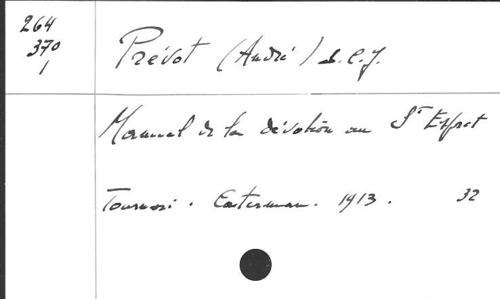 264
370
1
Prévot (André) S.C.J.
Manuel de la dévotion au St Esprit
Tournai. Casterman. 1913. 32